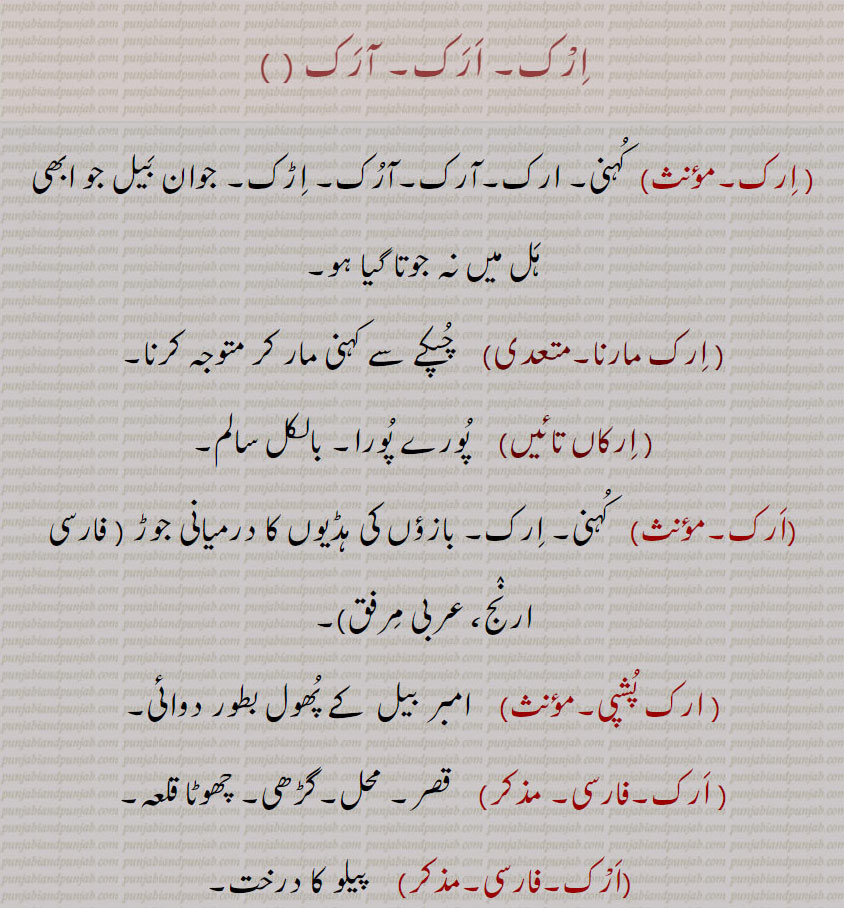 اِرْک ۔ اَرَک ۔ آرَک ( )
( اِرک ۔ مؤنث ) کُہنی ۔ ارک ۔ آرک ۔ آرُک ۔ اِڑک ۔ جوان بَیل جو ابھی
ہَل میں نہ جوتا گیا ہو ۔
( اِرک مارنا ۔ متعدی ) چُپکے سے کہنی مار کر متوجہ کرنا ۔
( اِرکاں تائیں ) پُورے پُورا ۔ بالکل سالم ۔
( اَرک ۔ مؤنث ) کُہنی ۔ اِرک ۔ بازؤں کی ہڈیوں کا درمیانی جوڑ ( فارسی
ارنْج ، عربی مِرفق ) ۔
( ارک پُشپی ۔ مؤنث ) امبر بیل کے پُھول بطور دوائی ۔
( اَرک ۔ فارسی ۔ مذکر ) قصر ۔ محل ۔ گڑھی ۔ چھوٹا قلعہ ۔
( اَرْک ۔ فارسی ۔ مذکر ) پیلو کا درخت ۔